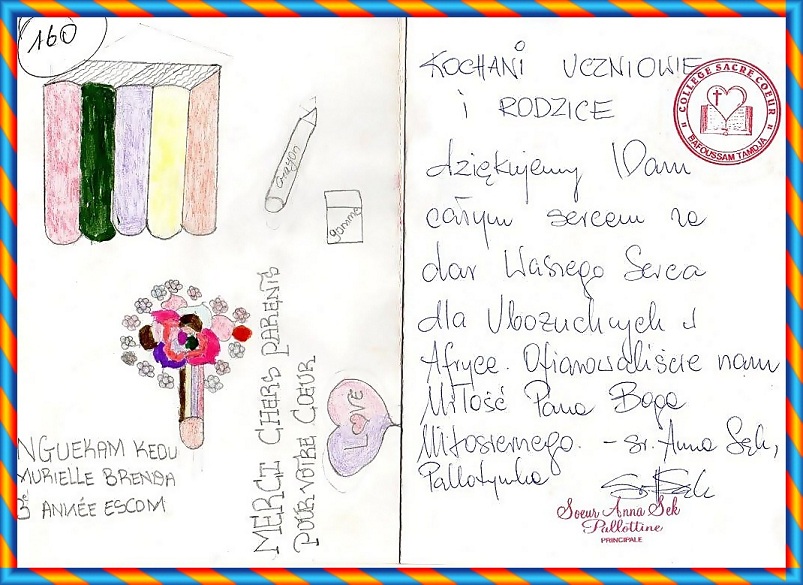 160
crayon
gomme
NGUEKAM KEDU
MURIELLE BRENDA
3e ANNÉE ESCOM
MERCI CHERS PARENTS
POUR VOTRE COEUR
LOVE
KOCHANI UCZNIOWIE
i RODZICE
COLLEGE SACRE COEUR
BAFOUSSAM TAMDJA
dziękujemy Wam
całym sercem za
dar Waszego Serca
dla Ubozuchnych w
Afryce. Ofiarowaliście nam
Miłość Pana Boga
Miłosiernego. - sr. Anna Sęk,
Pallotynka
Soeur Anna Sek
Pallottine
PRINCIPALE